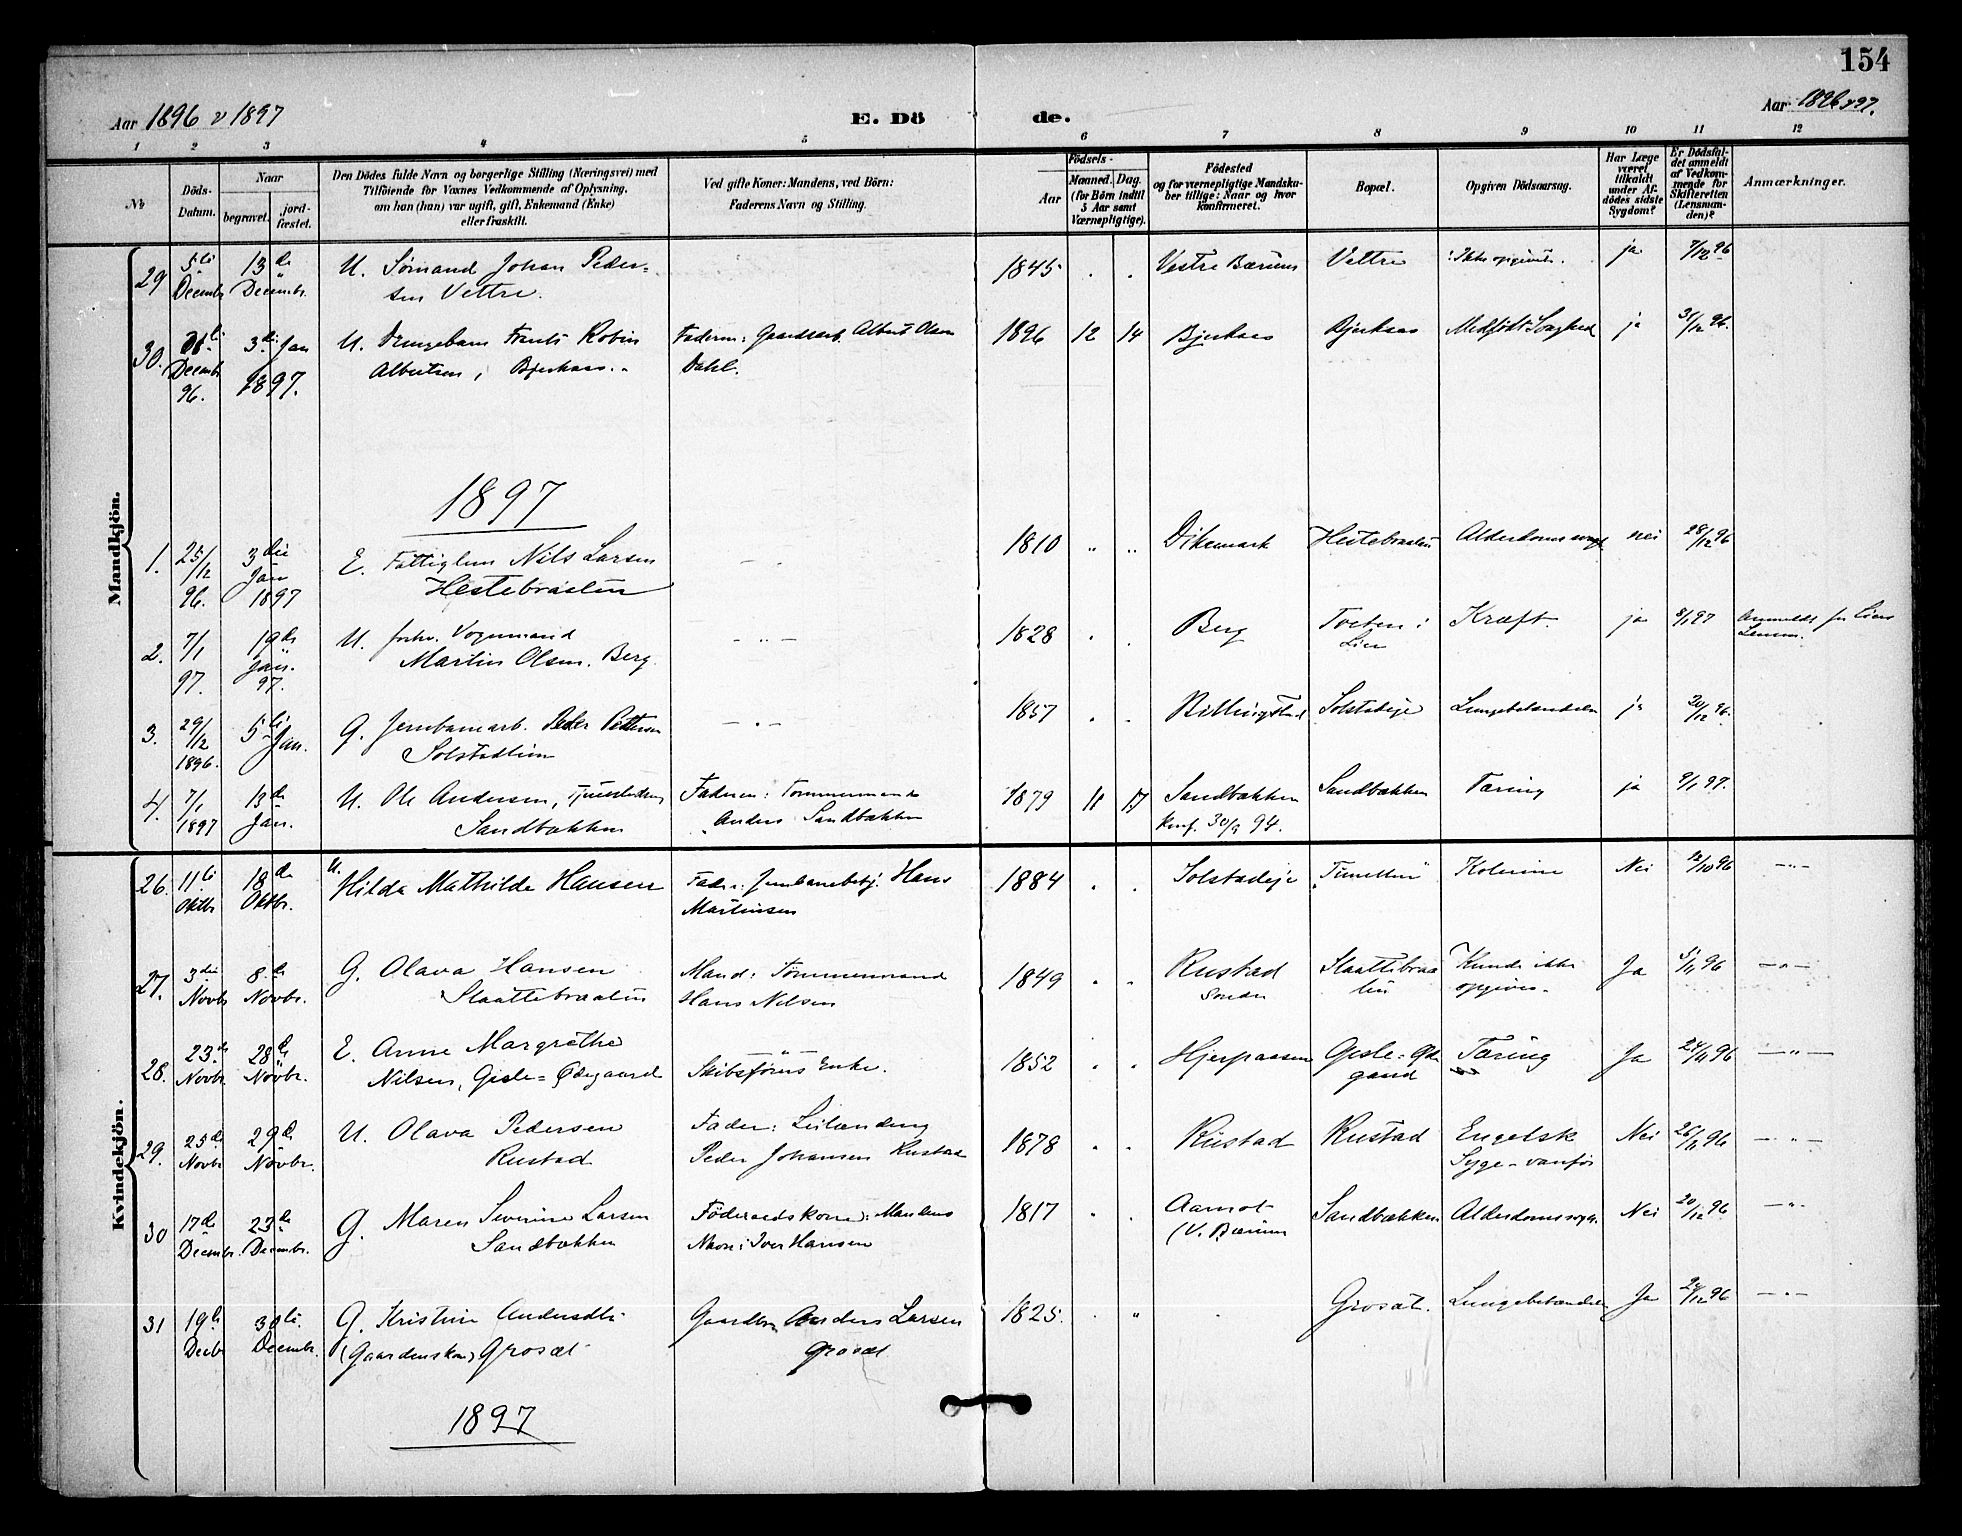 154
Aar 1896 & 1897
E. Dö de.
Aar 1896 & 97.
1 2 3 4 5 6 7 8 9 10 11 12
No
Döds-Datum.
Naar
begravet.
jord-fæstet.
Den Dödes fulde Navn og borgerlige Stilling (Næringsvei) med
Tilföiende for Voxnes Vedkommende af Oplysning,
om han (hun) var ugift, gift, Enkemand (Enke)
eller fraskilt.
Ved gifte Koner: Mandens, ved Börn:
Faderens Navn og Stilling.
Födsels-
Aar
Maaned. Dag.
(for Börn indtil
5 Aar samt
Værnepligtige).
Födested
og for værnepligtige Mandska-
ber tillige: Naar og hvor
konfirmeret.
Bopæl.
Opgiven Dödsaarsag.
Har Læge
været
tilkaldt
under Af-
dödes sidste
Sygdom?
Er Dödsfal-
det anmeldt
af Vedkom-
mende for
Skifteretten
(Lensman-
den)?
Anmærkninger.
Mandkjön.
29 5te Decembr 13de Decembr. U. Sømand Johan Peder-
sen Vettre. 1845 Vestre Bærum Vettre Ikke opgivet. ja 7/12 96
30. 31te Decembr 96. 3die Jan 1897. U. Drengebarn Frants Robin
Albertsen, Bjerkaas. Faderen: Gaardarb. Albert Olsen
Dahl. 1896 12 14 Bjerkaas Bjerkaas Medfödt Svaghed ja 31/12 96.
1897
1. 25/12 96. 3die Jan 1897 E. Fattiglem Nils Larsen
Hestebraaten 1810 Dikemark Hestebraaten Alderdomssvagh. nei 28/12 96
2. 7/1 97. 19de Jan. 97. U. forhv. Vognmand
Martin Olsen. Berg. 1828 Berg Tveten i
Lier Kræft. ja 8/1 97 Anmeldt for Liers
Lensm.
3. 29/12 1896. 5te Jan. G. Jernbanearb. Peder Pettersen
Solstadlien 1857 Billingstad Solstadeje Lungebetændelse ja 30/12 96.
4. 7/1 1897 13de Jan. U. Ole Andersen,
Sandbækken Faderen: Tømmermand
Anders Sandbækken 1879 11 17 Sandbækken
Konf. 30/9 94. Sandbækken Tæring ja 9/1 97.
Kvindekjön.
26. 11te Oktbr 18de Oktbr. U. Hilda Mathilde Hansen Fader: Jernbanebetj. Hans
Martinsen 1884 Solstadeje "Tunellen" Kolerine Nei 12/10 96
27. 3die Novbr 8de Novbr. G. Olava Hansen
Slaattebraaten Mand: Tømmermand
Hans Nilsen 1849 Rustad
Søndre Slaattebraa
ten Kunde ikke
opgives. Ja 5/11 96
28. 23de Novbr 28de Novbr. E. Anne Margrethe
Nilsen, Gisle-Ødegaard Skibsførers Enke. 1852 Hjerpaasen Gisle-Øde
gaard Tæring Ja 24/11 96
29. 25de Novbr 29de Novbr. U. Olava Pedersen
Rustad Fader: Leilænding
Peder Johansen Rustad 1878 Rustad Rustad Engelsk
Syge-vanfør Nei 26/11 96
30 17de Decembr. 23de Decembr. G. Maren Severine Larsen
Sandbækken Föderaadskone: Mandens
Navn: Iver Hansen 1817 Aamot
(V. Bærum Sandbækken Alderdomssvagh. Nei 20/12 96
31 19de Decbr 30te Decembr. G. Kristine Andersdtr
(Gaardmskone) Grosæt Gaardbr. Anders Larsen
Grosæt 1825 Grosæt. Lungebetændelse Ja 24/12 96
1897